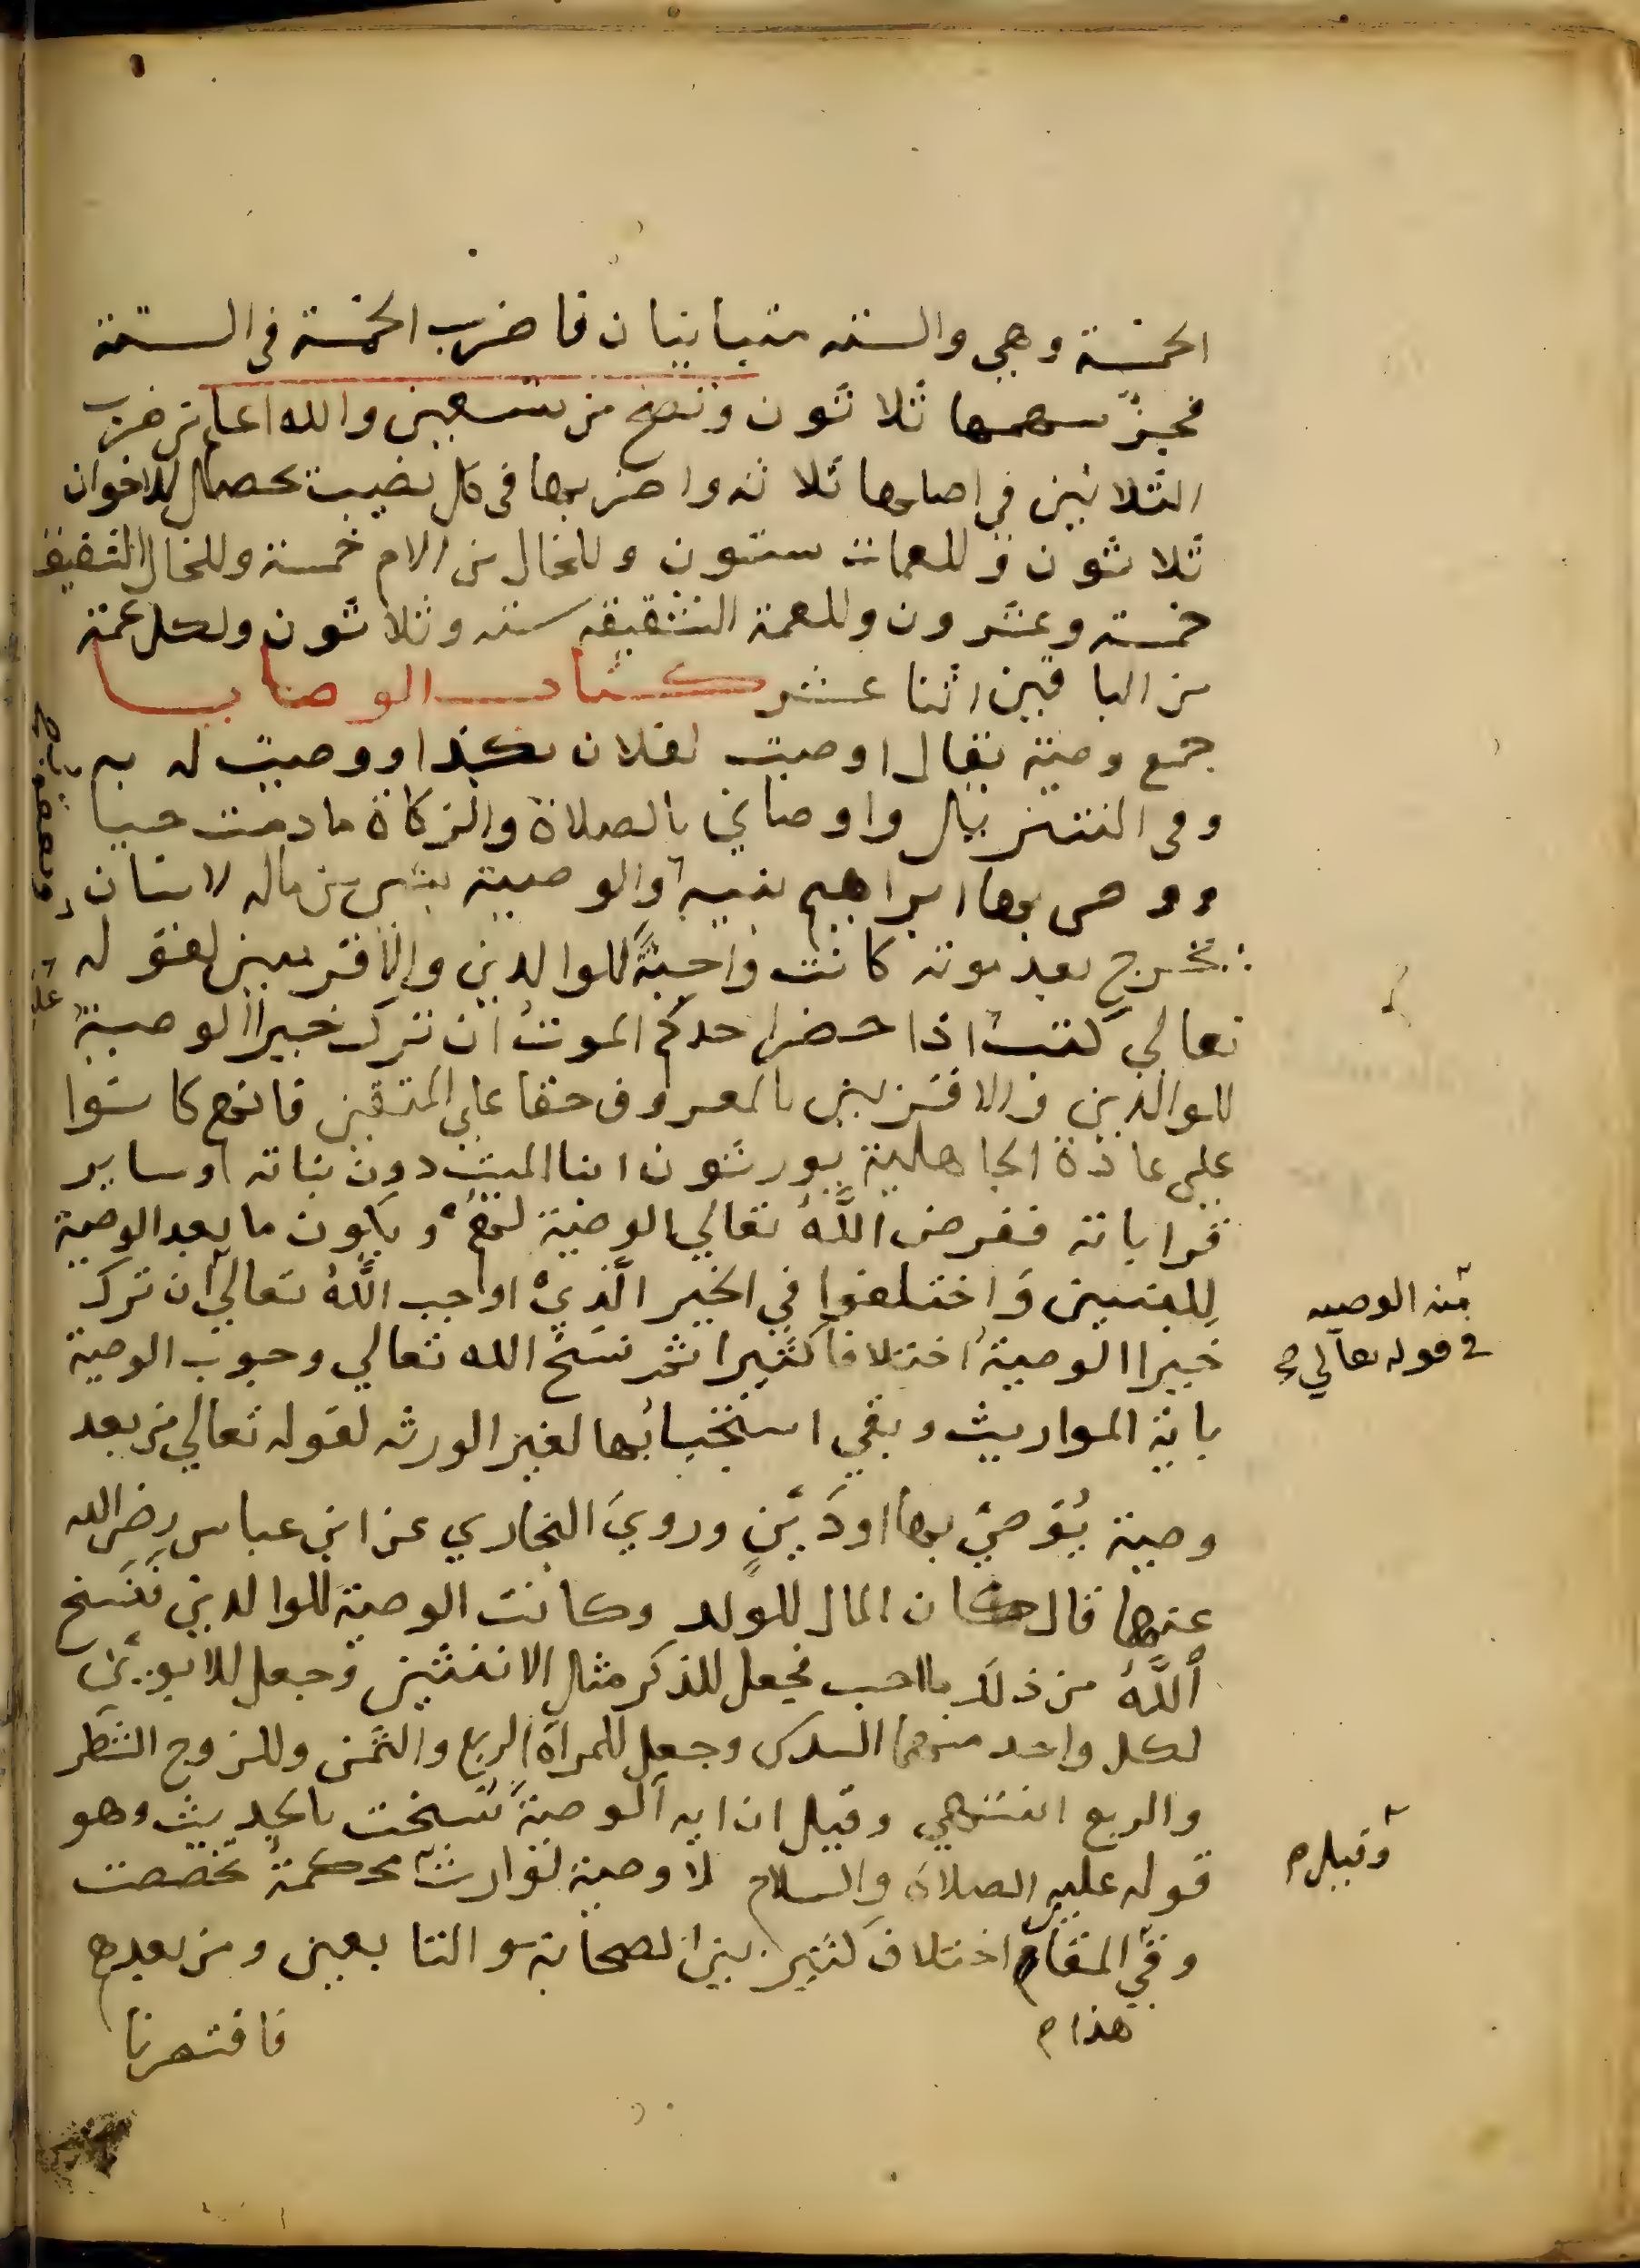 الخمسة وهي والستة متباينان فاضرب الخمسة في الستة
فجز سهمها ثلاثون وتصح من تسعين والله اعلم من ضرب
الثلاثين في اصلها ثلاثة واضربها في كل نصيب يحصل للاخوال
ثلاثون وللعمات ستون وللخال من الام خمسة وللخال الشقيق
خمسة وعشرون وللعمة الشقيقة ستة وثلاثون ولكل عمة
من الباقين اثنا عشر كتاب الوصايا
جمع وصية يقال اوصيت لفلان بكذا ووصيت له به
وفي التنزيل واوصاني بالصلاة والزكاة ما دمت حيا
ووصى بها ابراهيم بنيه والوصية بشي من ماله لانسان
يخرج بعد موته كانت واجبة للوالدين والاقربين لقوله
تعالي كتب اذا حضر احدكم الموت ان ترك خيرا الوصية
للوالدين والاقربين بالمعروف حقا علي المتقين فانهم كانوا
علي عادة الجاهلية يورثون ابنا الميت دون بناته او ساير
قراباته ففرض الله تعالي الوصية لهم ويكون ما بعد الوصية
للبنين واختلفوا في الخير الذي اوجب الله تعالي ان ترك
خيرا الوصية اختلافا كثيرا ثم نسخ الله تعالي وجوب الوصية
باية المواريث وبقي استحبابها لغير الورثه لقوله تعالي من بعد
وصية يوصي بها او دين وروي البخاري عن ابن عباس رضي الله
عنهما قال كان المال للولد وكانت الوصية للوالدين فنسخ
الله من ذلك ما احب فجعل للذكر مثل الانثيين وجعل للابوين
لكل واحد منهما السدس وجعل للمراة الربع والثمن وللزوج الشطر
والربع انتهي وقيل ان اية الوصية نسخت بالحديث وهو
قوله عليه الصلاة والسلام لا وصية لوارث محكمة تخصصت
وفي المقام اختلاف كثير بين الصحابة والتابعين ومن بعدهم
هذا م
فاقتصرنا
ويعقوب
علي
منه الوصيه
في قوله تعالي
وقيل م